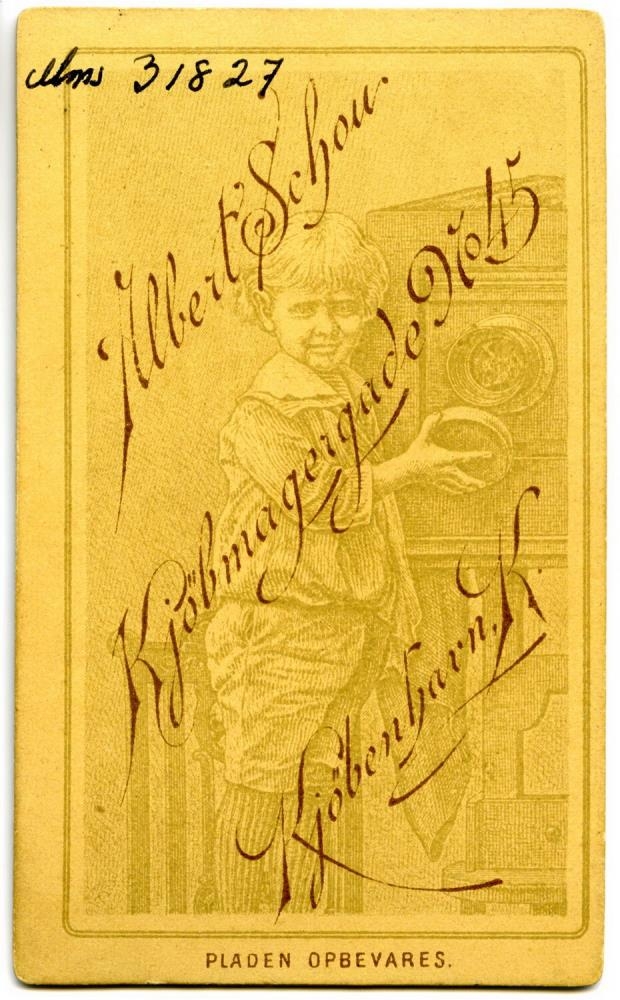 Mms 31827
Albert Schou.
Kjöbmagergade No 45
Kjöbenhavn. K.
PLADEN OPBEVARES.